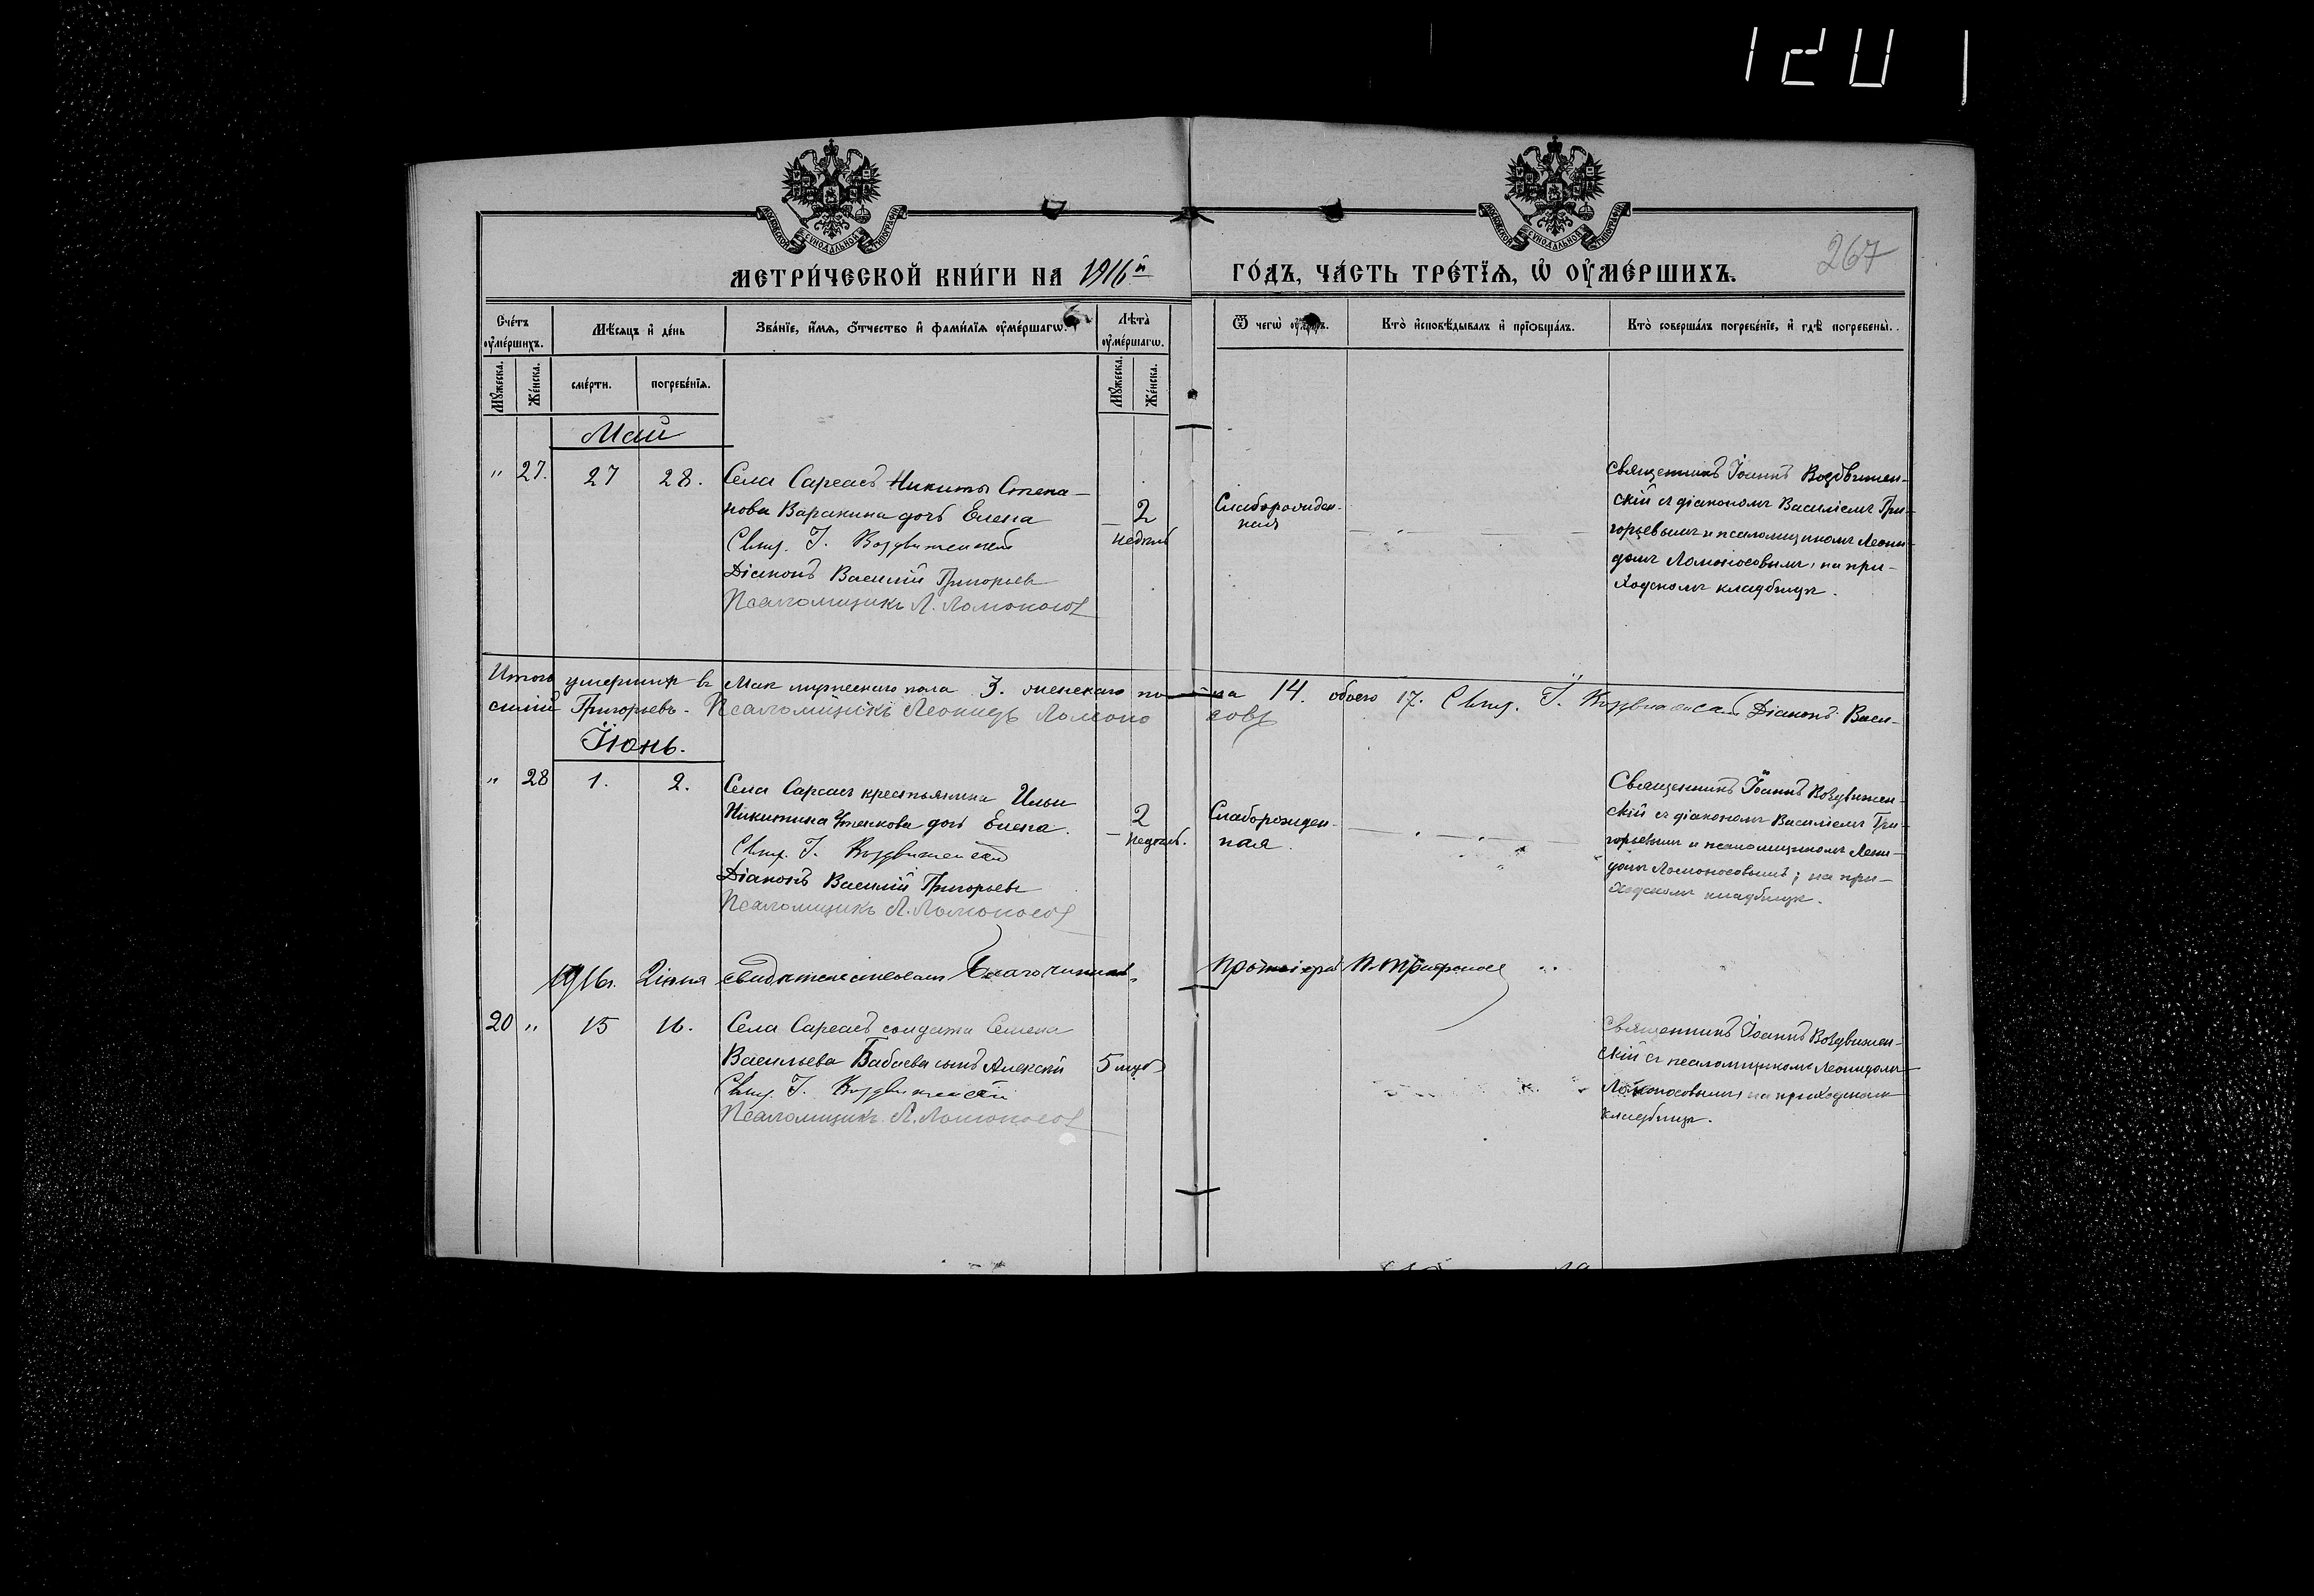 1201
МОСКОВСКОЙ СѴНОДАЛЬНОЙ ТИПОГРАФІИ
МОСКОВСКОЙ СѴНОДАЛЬНОЙ ТИПОГРАФІИ
267
МЕТРИ́ЧЕСКОЙ КНИ́ГИ НА 1916й
ГО́ДЪ, ЧА́СТЬ ТРЕ́ТІѦ, Ѡ҆ ОУ҆МЕ́РШИХЪ.
Сче́тъ оу҆ме́ршихъ.
Мѣ́сѧцъ и҆ де́нь
Зва́нїе, и҆́мѧ, ѻ҆́тчество и҆ фами́лїѧ оу҆ме́ршагѡ.
Лѣта̀ оу҆ме́ршагѡ.
Ѿ чегѡ̀
Кто̀ и҆сповѣ́дывалъ и҆ прїѡбща́лъ.
Кто̀ соверша́лъ погребе́нїе, и҆ гдѣ̀ погребены̀.
Мꙋ́жеска.
Же́нска.
сме́рти.
погребе́нїѧ.
Мꙋ́жеска.
Же́нска.
Май
" 27. 27 28.
Села Сареевъ Никиты Степа-
нова Варакина дочь Елена
Свящ. І. Воздвиженскій
Діаконъ Василій Григорьевъ
Псаломщикъ Л. Ломоносов
2
недѣль
Слаборожден-
ная
Священникъ Іоаннъ Воздвижен-
скій съ діакономъ Василіемъ Гри-
горьевымъ и псаломщикомъ Леони-
домъ Ломоносовымъ, на при-
ходскомъ кладбищѣ.
Итого умершихъ въ Маѣ мужескаго пола 3. женскаго по- ла 14. обоего 17. Свящ. І. Воздвиженскій Діаконъ Васи-
силій Григорьевъ. Псаломщикъ Леонидъ Ломоно совъ
Іюнь.
" 28 1. 2.
Села Сареевъ крестьянина Ильи
Никитина дочь Елена.
Свящ. І. Воздвиженскій
Діаконъ Василій Григорьевъ
Псаломщикъ Л. Ломоносов
2
недѣль.
Слаборожден-
ная.
Священникъ Іоаннъ Воздвижен-
скій съ діакономъ Василіемъ Гри-
горьевымъ и псаломщикомъ Леони-
домъ Ломоносовымъ; на при-
ходскомъ кладбищѣ.
1916г. 2 іюня свидѣтельствовалъ Благочинный, Протоіерей
20 " 15 16.
Села Сареевъ солдата Семена
Васильева Бабаева сынъ Алексѣй
Свящ. І. Воздвиженскій
Псаломщикъ Л. Ломоносов
5 мцв
Священникъ Іоаннъ Воздвижен-
скій съ псаломщикомъ Леонидомъ
Ломоносовымъ, на приходскомъ
кладбищѣ.